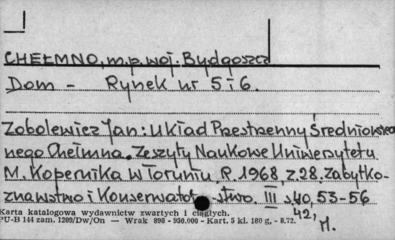 CHEŁMNO, m.p. woj. Bydgoszcz
Dom - Rynek nr 5 i 6.
Zobolewicz Jan: Układ Przestrzenny Średniowie
nego Chełmna. Zeszyty Naukowe Uniwersytetu
M. Kopernika w Toruniu, R. 1968, z 28. Zabytko-
znawstwo i Konserwatorstwo. III s. 40, 53-56
42,
M.
Karta katalogowa wydawnictw zwartych i ciągłych.
PU-B 144 zam. 1209/Dw/On — Wrak 898 - 950.000 - Kart. 5 kl. 180 g. - 8.72.